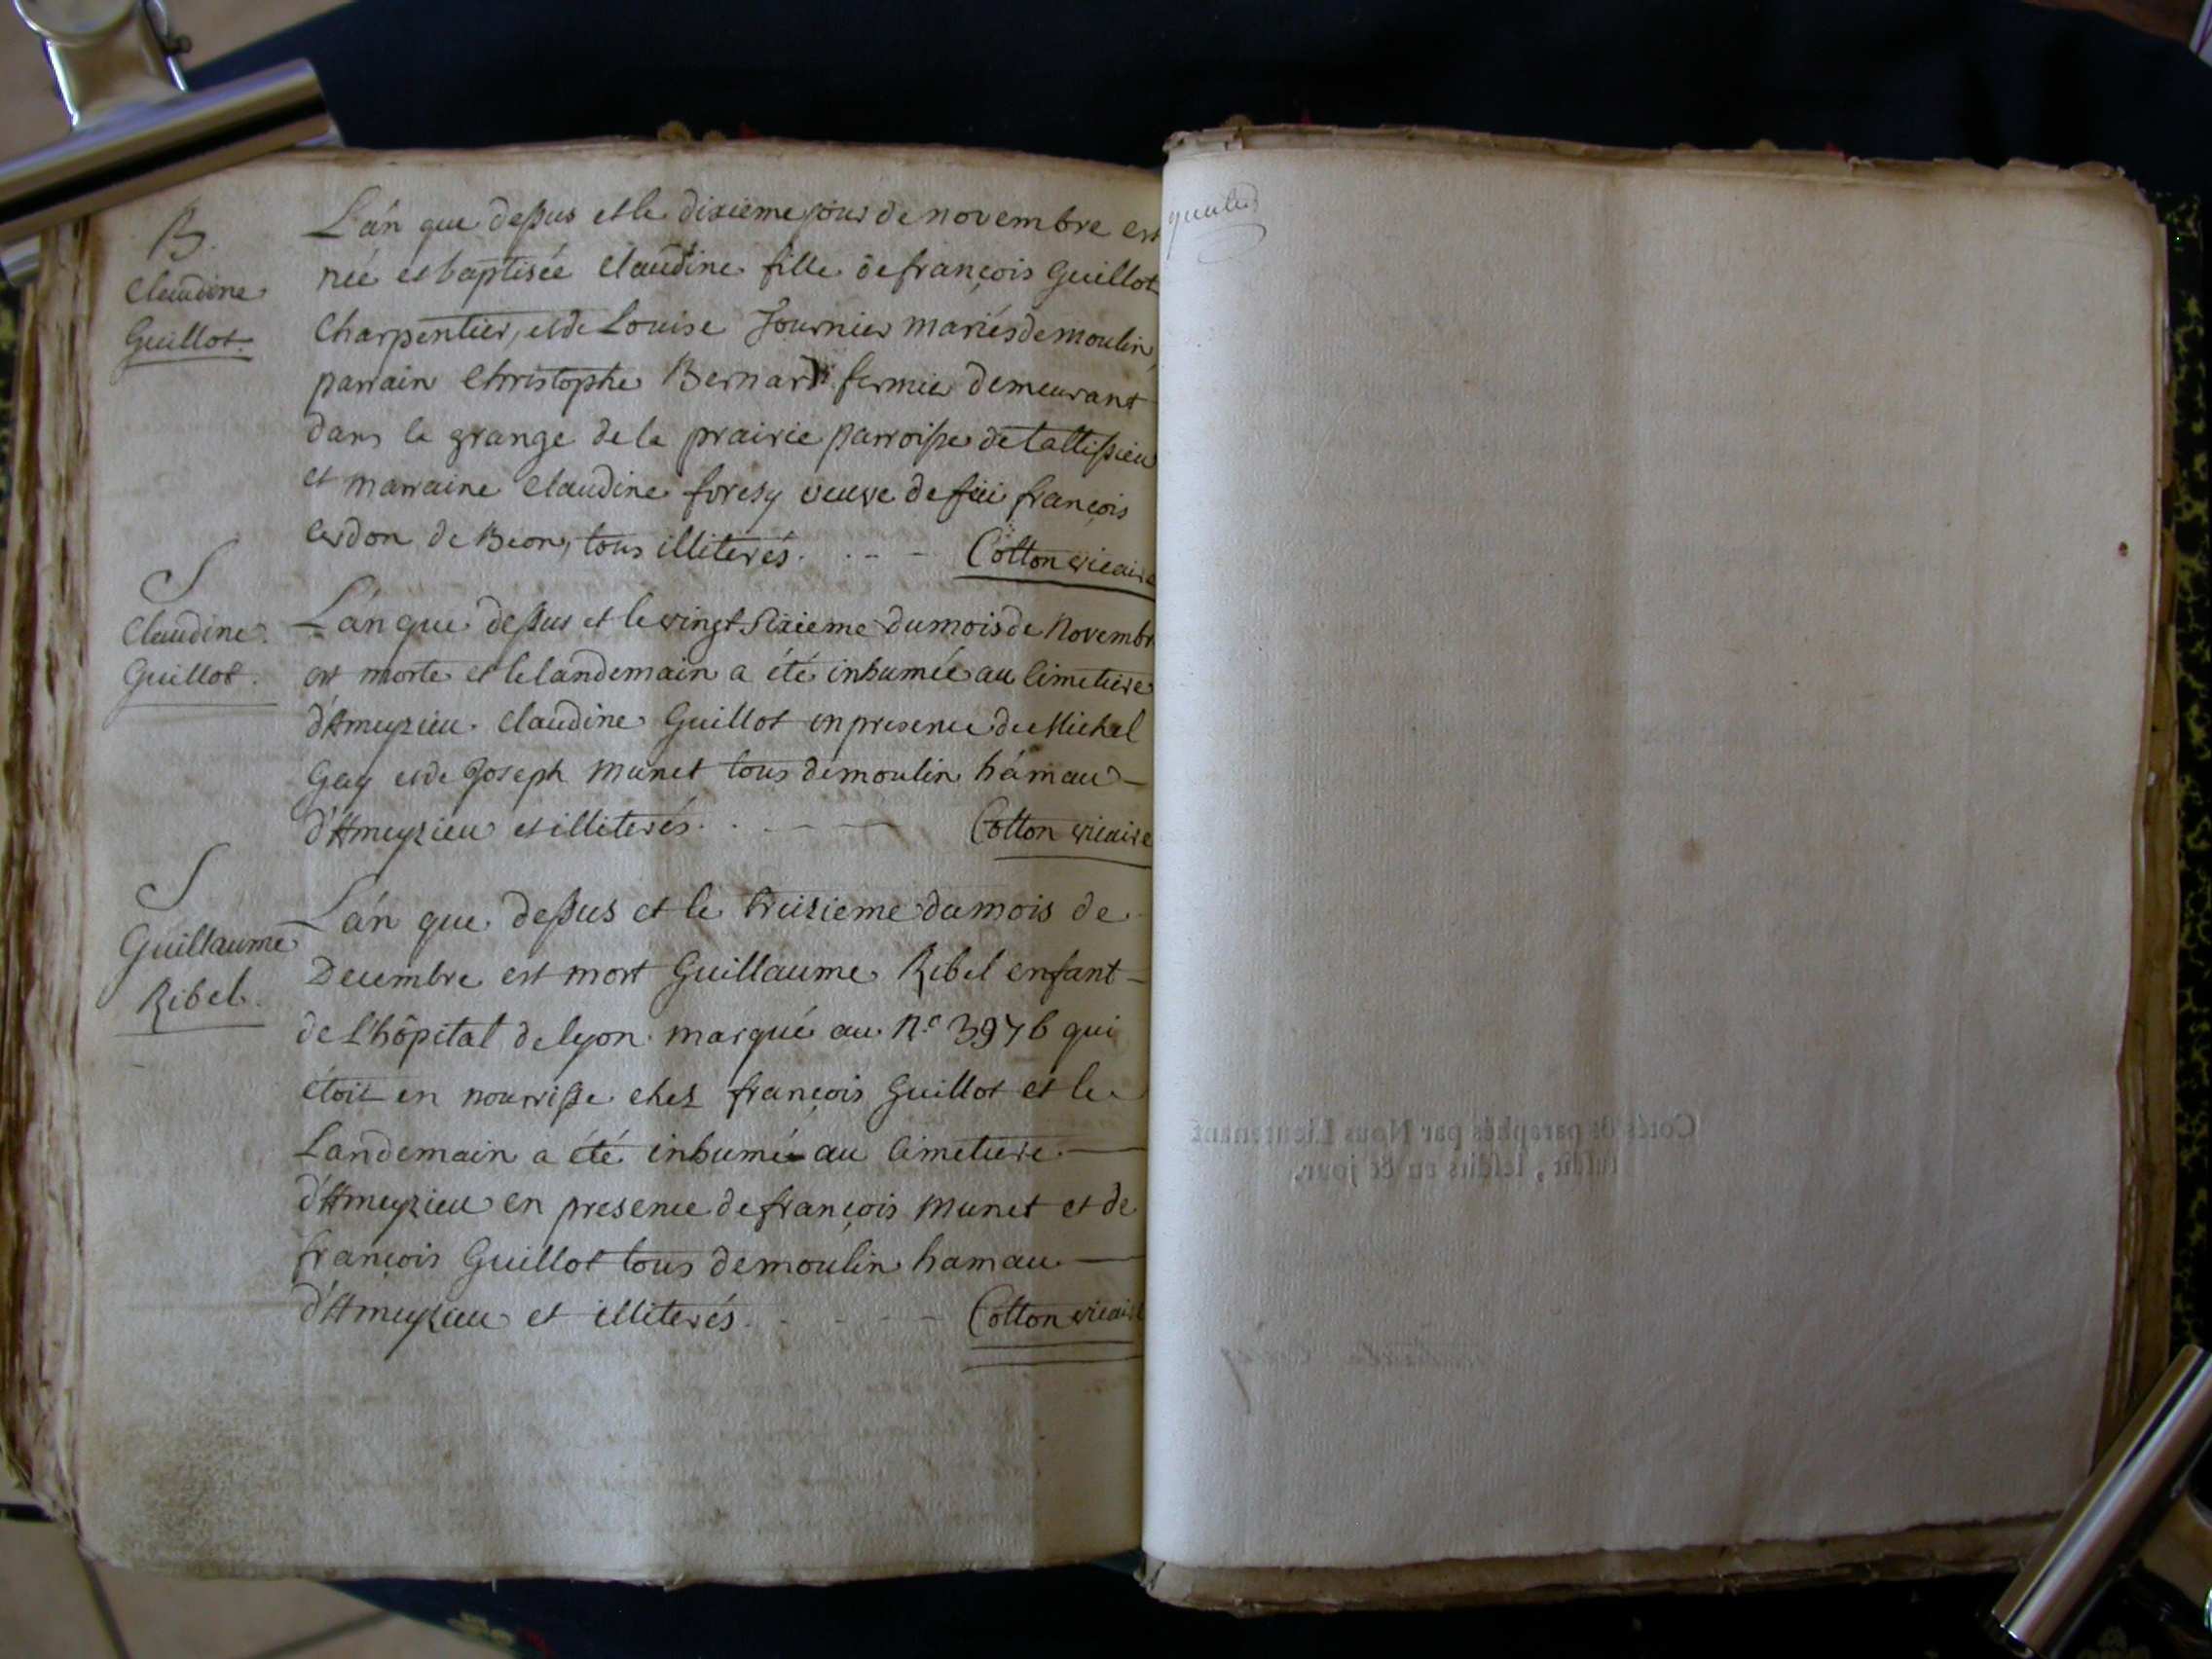 B.
Claudine
Guillot.
L'an que dessus et le dixieme jour de novembre est
née et baptisée Claudine fille de françois Guillot
Charpentier, et de Louise Fournier mariés de moulin,
parrain Christophe Bernard fermier demeurant
dans la grange de la prairie parroisse de tallissieu
et marraine Claudine foresy veuve de feu françois
Cerdon de Beon, tous illiterés. Cotton vicaire
S
Claudine
Guillot.
L'an que dessus et le vingt sixieme du mois de Novembr
est morte et le landemain a été inhumée au Cimetiere
d'Ameyzieu Claudine Guillot en presence de Michel
Gay et de Joseph Munet tous de moulin hámau
d'Ameyzieu et illiterés. Cotton vicaire
S
Guillaume
Ribel.
L'an que dessus et le treizieme du mois de
Decembre est mort Guillaume Ribel enfant
de L'hôpital de lyon marqué au N.o 3976 qui
étoit en nourrisse chez françois Guillot et le
Landemain a été inhumé au Cimetiere
d'Ameyzieu en presence de françois Munet et de
françois Guillot tous de moulin hamau
d'Ameyzieu et illiterés. Cotton vicaire
Cotés & paraphés par Nous Lieutenant
susdit, lesdits an & jour.